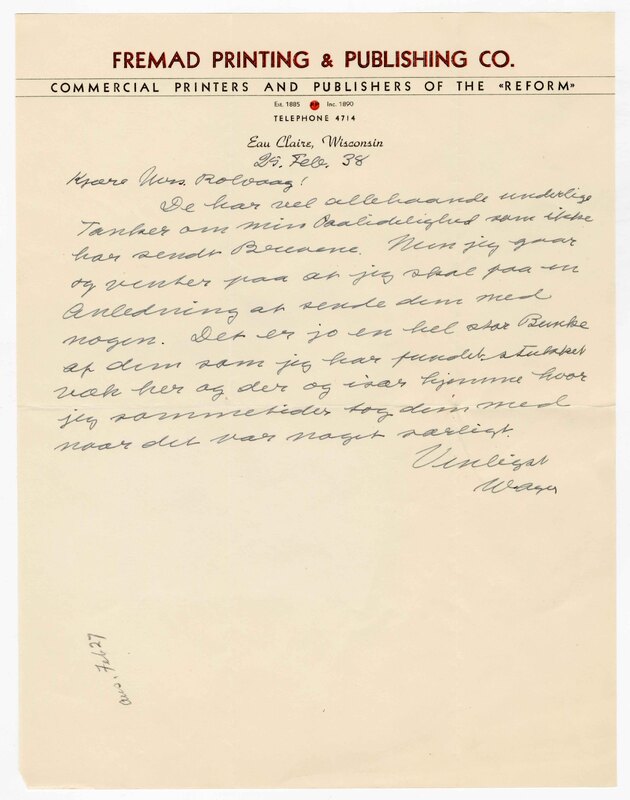 FREMAD PRINTING & PUBLISHING CO.
COMMERCIAL PRINTERS AND PUBLISHERS OF THE «REFORM»
Est. 1885 Inc. 1890
TELEPHONE 4714
Eau Claire, Wisconsin
25. Feb. 38
Kjære Mrs. Rolvaag!
De har vel allehaande underlige
Tanker om min Paalidelighed som ikke
har sendt Brevene. Men jeg gaar
og venter paa at jeg skal faa en
Anledning at sende dem med
nogen. Det er jo en hel stor Bunke
af dem som jeg har fundet stukket
væk her og der og især hjemme hvor
jeg sommetider tog dem med
naar det var noget særligt.
Venligst
Wager
Ans. Feb 27